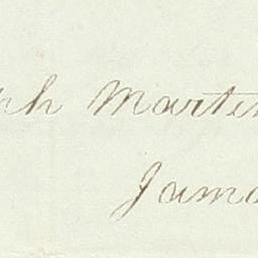 ph Martin
Jama